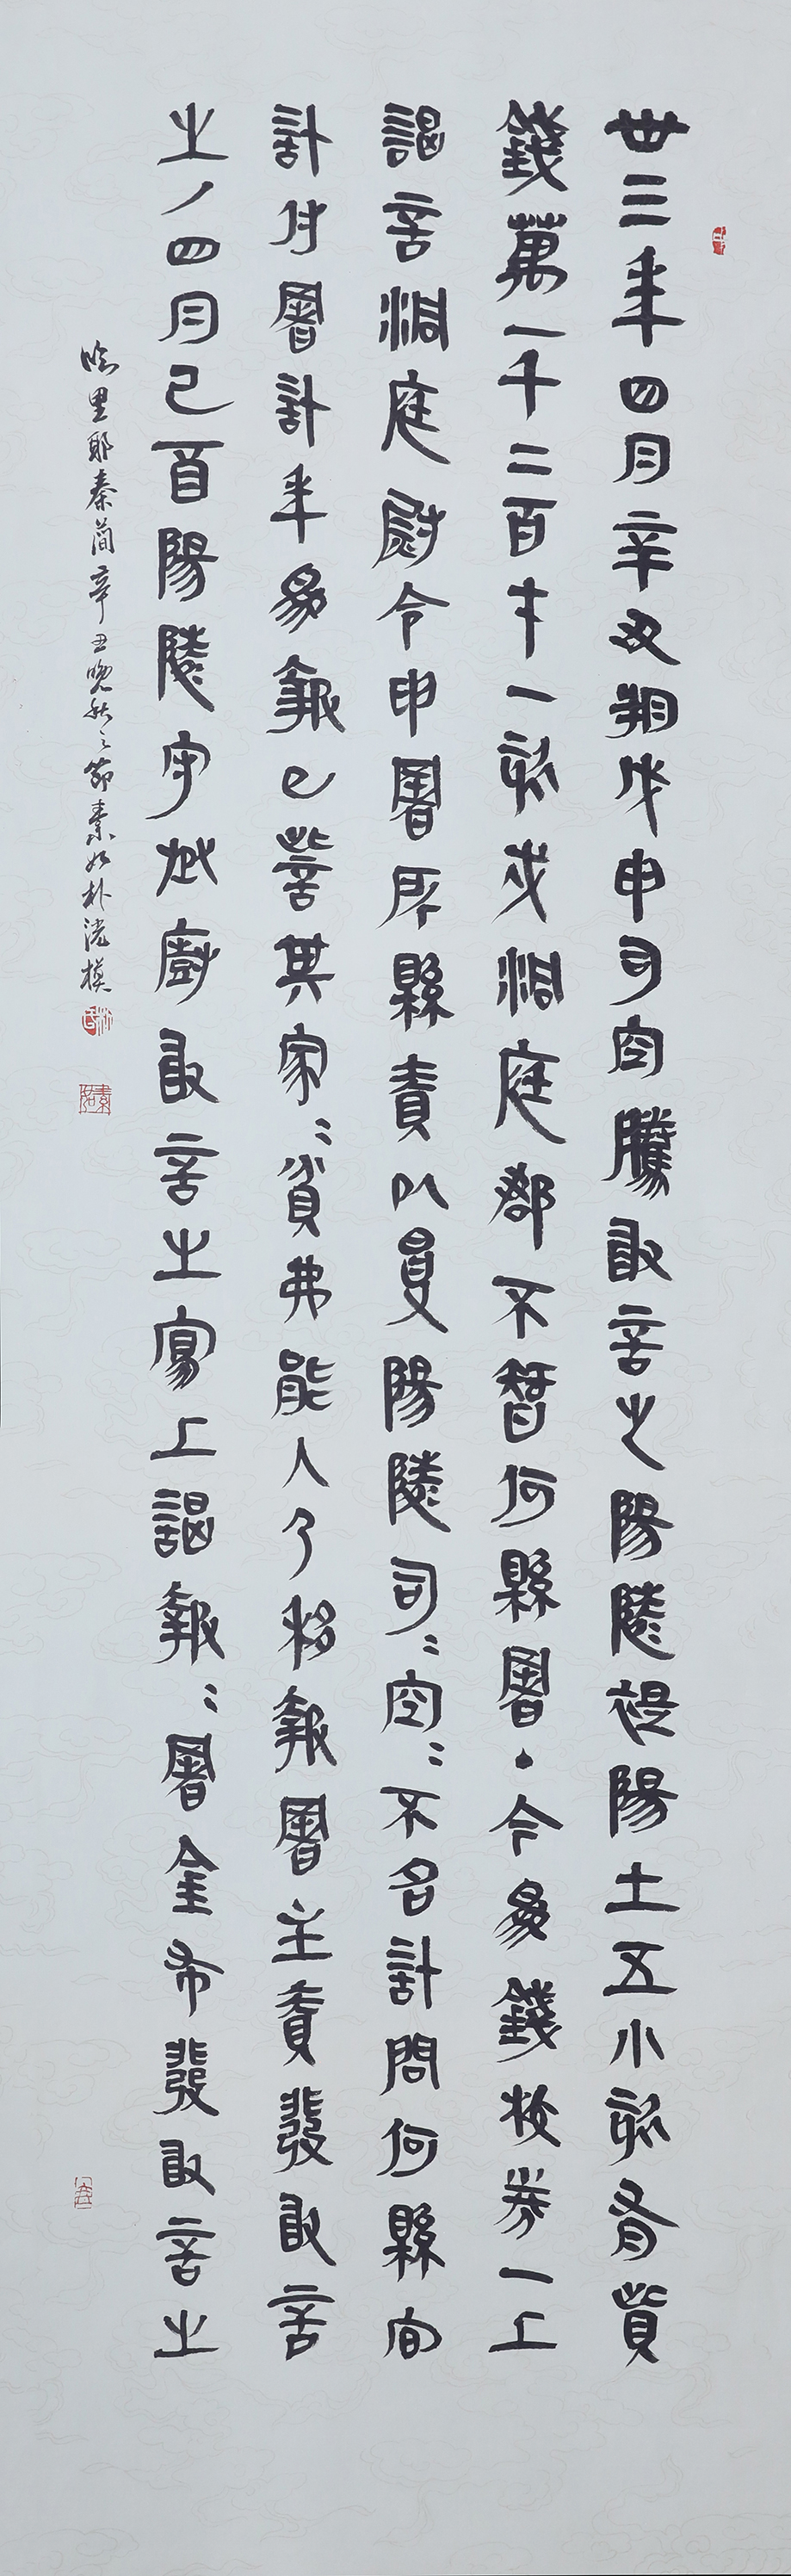 卅三年四月辛丑朔戊申司空騰敢言之陽陵禔陽士五小欬有貲
錢萬一千二百七十一欬戍洞庭郡不智何縣署・今為錢校券一上
謁言洞庭尉令申署所縣責以受陽陵司=空=不名計問何縣官
計付署計年為報已訾其家=貧弗能入乃移報署主責發敢言
之ノ四月己百陽陵守丞廚敢言之寫上謁報=署金布發敢言之
臨里耶秦簡辛丑晚秋之節素如朴模